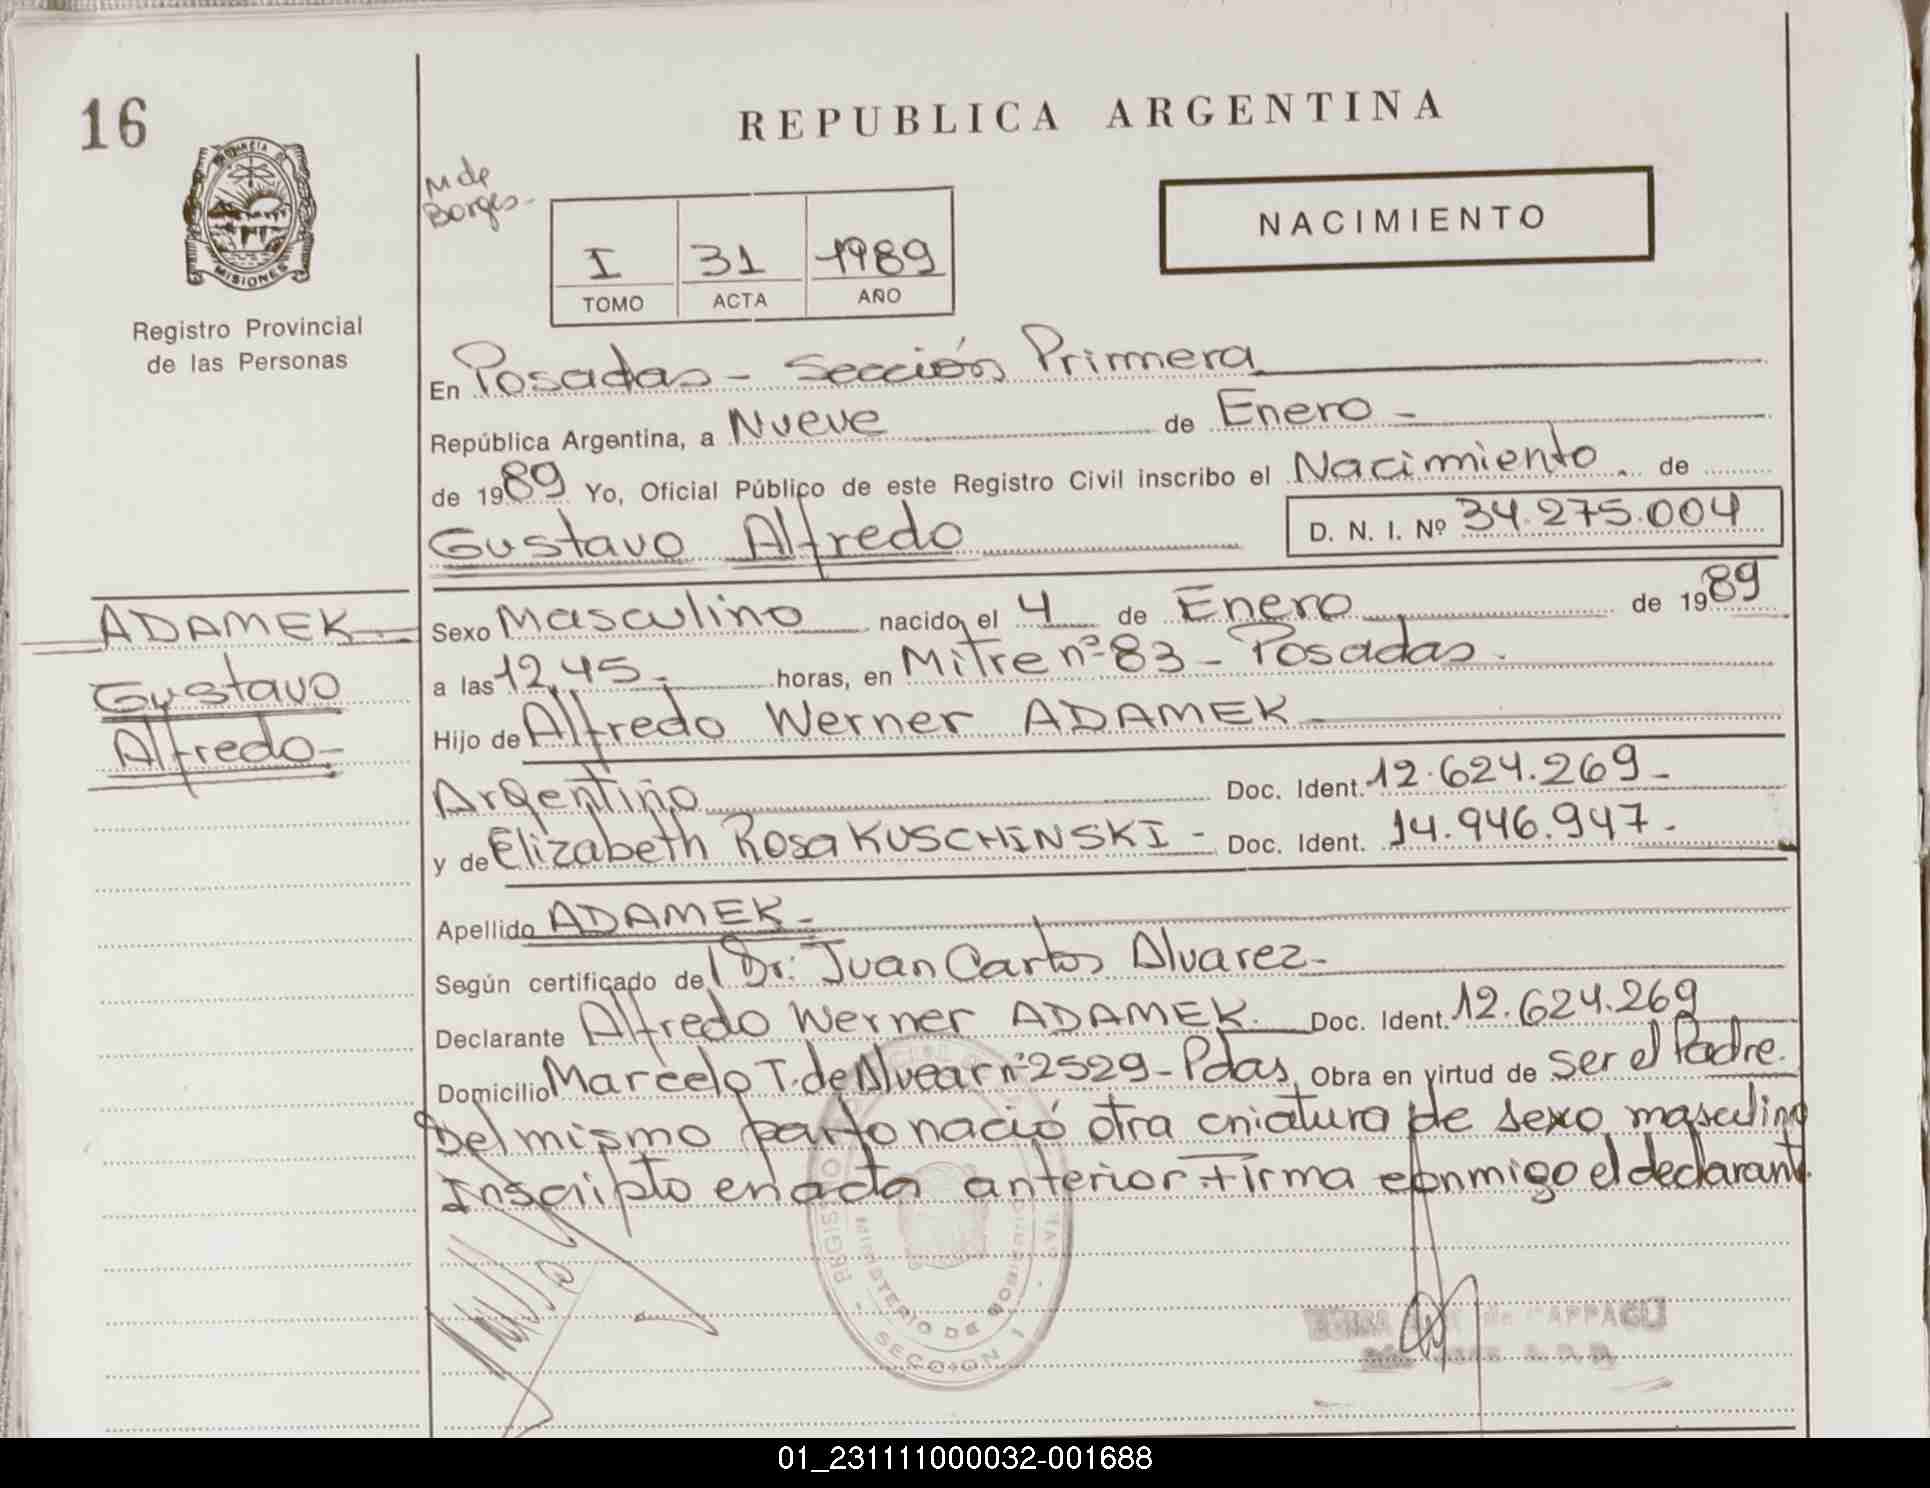 16
REPUBLICA ARGENTINA
PROVINCIA DE
MISIONES
Registro Provincial
de las Personas
M de
Borges-
I 31 1989
TOMO ACTA AÑO
NACIMIENTO
En Posadas - Sección Primera
República Argentina, a Nueve de Enero -
de 1989 Yo, Oficial Público de este Registro Civil inscribo el Nacimiento de
Gustavo Alfredo D. N. I. Nº 34.275.004
ADAMEK
Gustavo
Alfredo-
Sexo Masculino nacido el 4 de Enero de 1989
a las 12,45- horas, en Mitre nº 83 - Posadas.
Hijo de Alfredo Werner ADAMEK-
Argentino Doc. Ident. 12.624.269-
y de Elizabeth Rosa KUSCHINSKI - Doc. Ident. 14.946.947-
Apellido ADAMEK-
Según certificado del Dr: Juan Carlos Alvarez-
Declarante Alfredo Werner ADAMEK. Doc. Ident. 12.624.269
Domicilio Marcelo T. de Alvear nº 2529 - Pdas, Obra en virtud de ser el Padre.
Del mismo parto nació otra criatura de sexo masculino
Inscripto en acta anterior. Firma conmigo el declarant.
REGISTRO
MINISTERIO DE GOBIERNO
SECCION 1
de CAPPAGLI
01_231111000032-001688